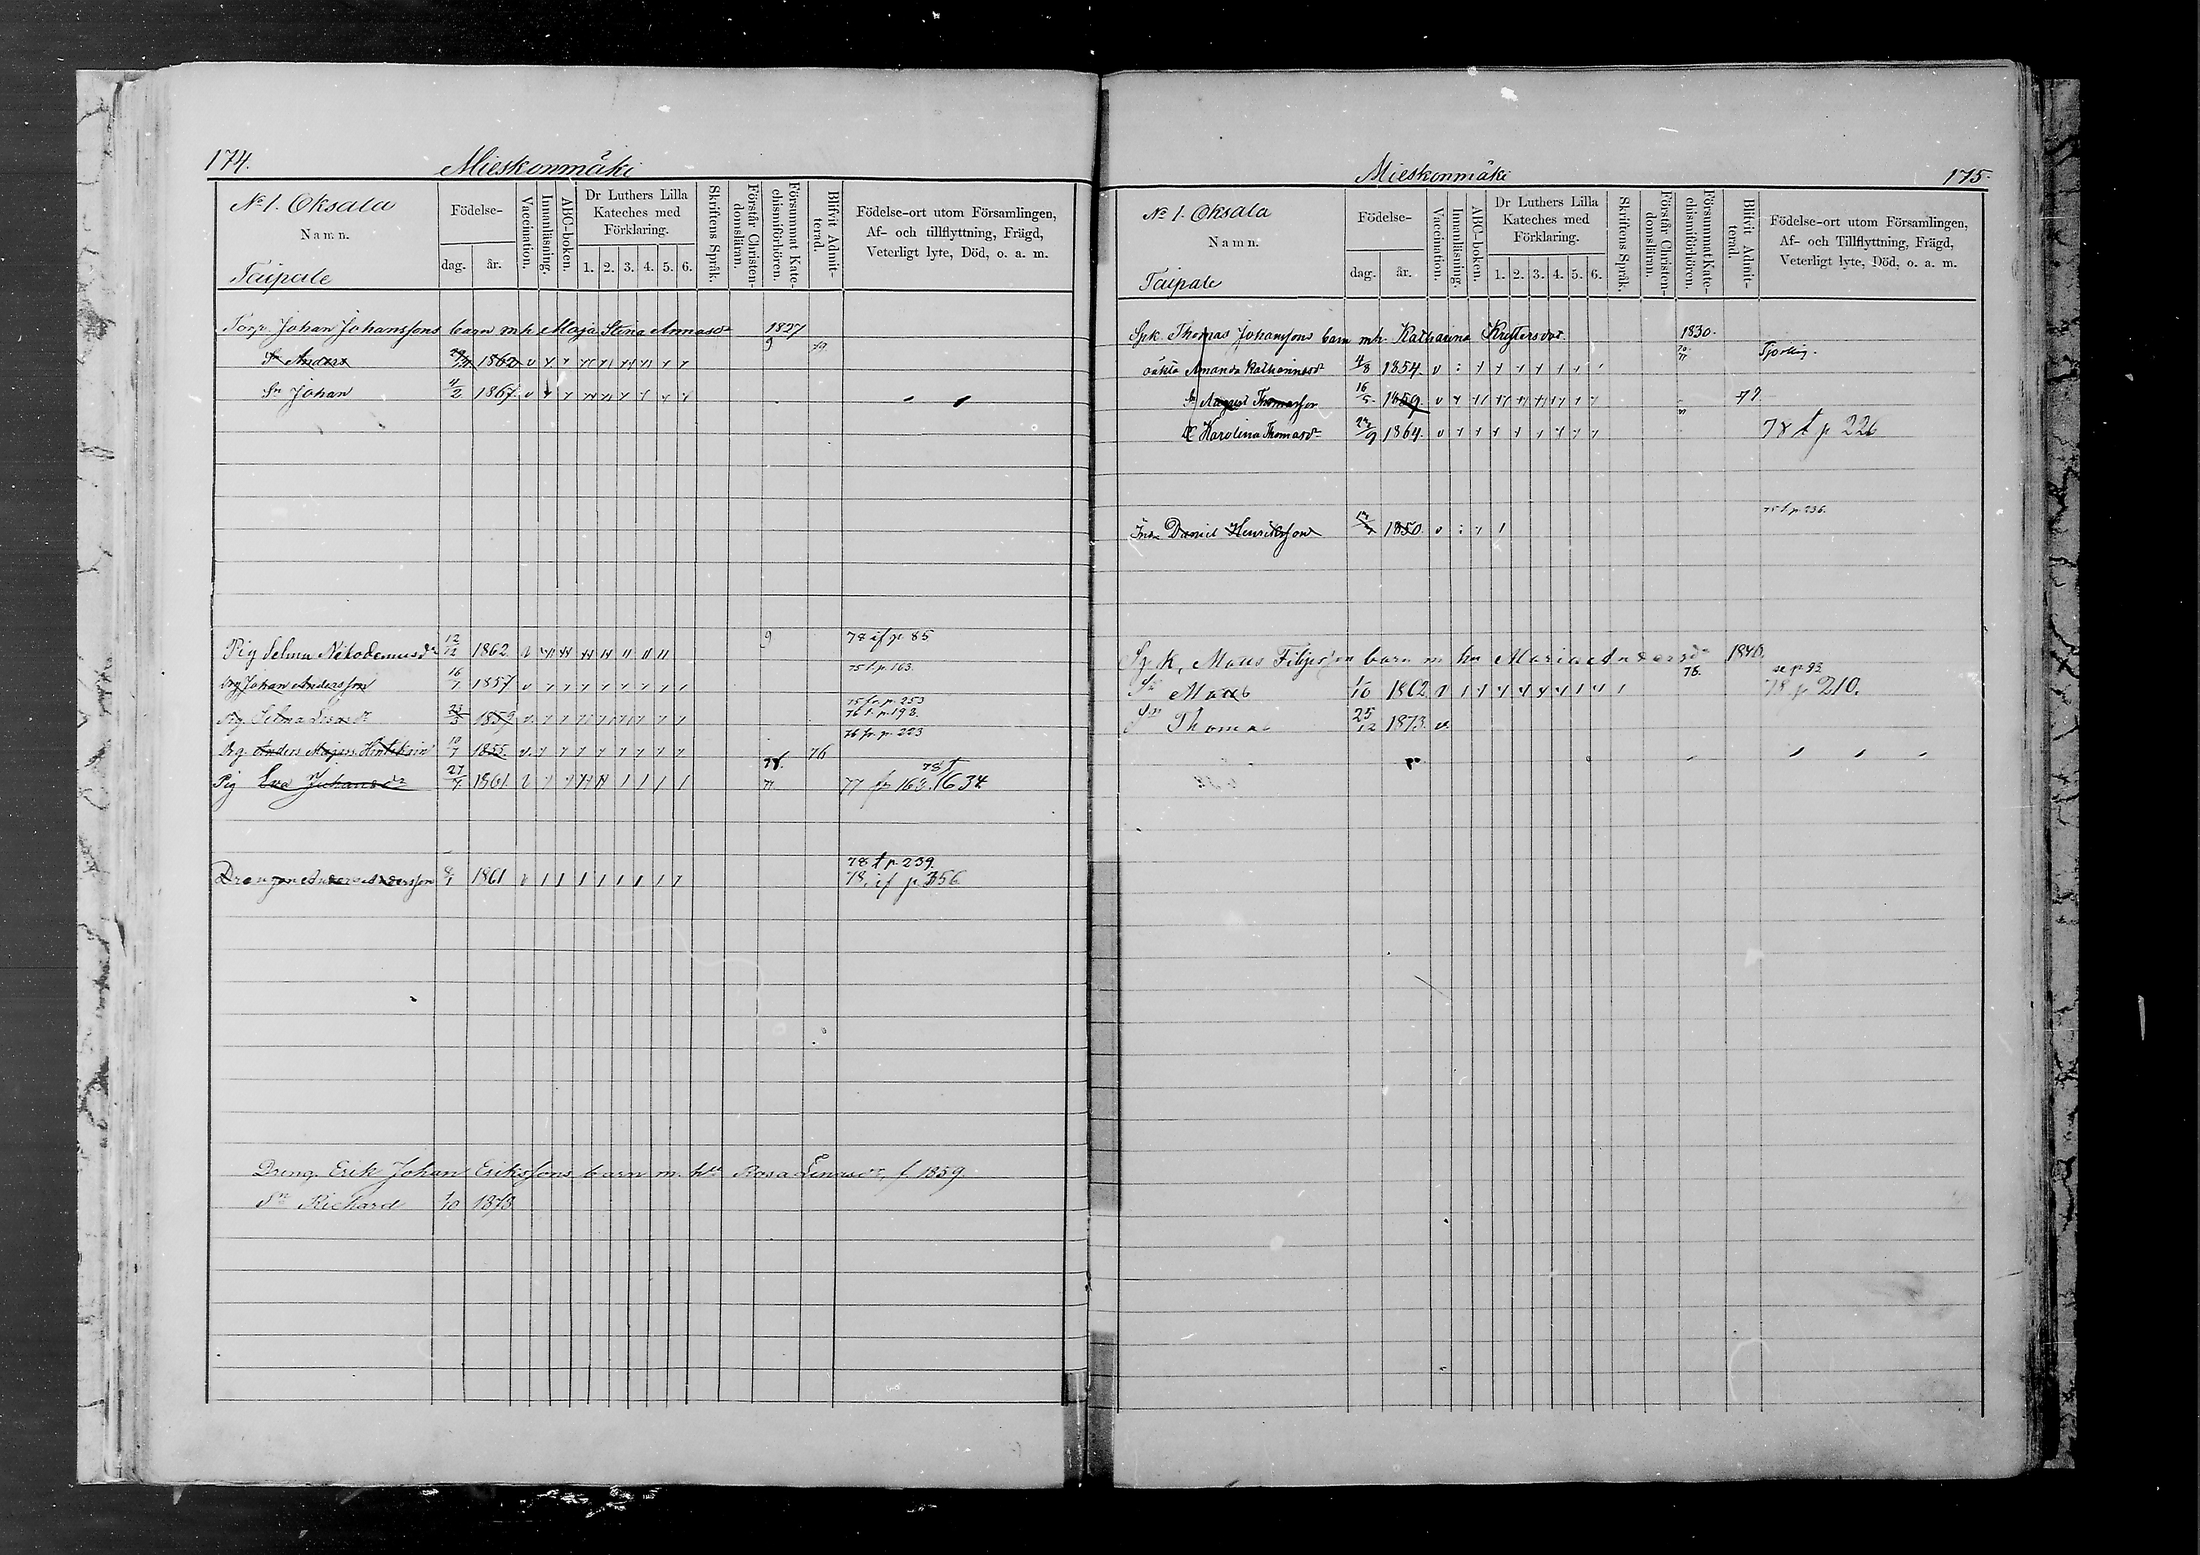 174.
Mieskonmäki
No 1. Oksala
Namn.
Taipale
Födelse-
dag.
år.
Vaccination.
Innanläsning.
ABC-boken.
Dr Luthers Lilla
Kateches med
Förklaring.
1. 2. 3. 4. 5. 6.
Skriftens Språk.
Förstår Christen-
domsläran.
Försummat Kate-
chismiförhören.
Blifvit Admit-
terad.
Födelse-ort utom Församlingen,
Af- och tillflyttning, Frägd,
Veterligt lyte, Död, o. a. m.
Torp. Johan Johanssons barn m h. Maja Stina Annasdr 1827
Sn Anders 1862
Sn Johan 4/2 1867.
Pig Selma Nikodemusdr 12/12 1862. 9 78 if p. 85
Drg Johan Andersson 16/7 1857 75 t. p. 163.
Pig. Selma 23/5 1859 75 fr. p. 253
76 t. p. 193.
Drg. Anders Majas. Henriksson 10/7 1855. 76 76 fr. p. 223
Pig Eva Johansdr 27/7 1861. 78. 77 77 fp 163.
78 t 634
Drengen Anders Andersson 8/1 1861 78 t p. 239.
78. if p 356
Dreng. Erik Johan Erikssons barn m. hu Rosa Linasdr, f. 1859.
Sn Richard 1/10 1878
Mieskonmäki
175.
No 1. Oksala
Namn.
Taipale
Födelse-
dag.
år.
Vaccination.
Innanläsning.
ABC-boken.
Dr Luthers Lilla
Kateches med
Förklaring.
1. 2. 3. 4. 5. 6.
Skriftens Språk.
Förstår Christen-
domsläran.
Försummat Kate-
chismiförhören.
Blifvit Admit-
terad.
Födelse-ort utom Församlingen,
Af- och Tillflyttning, Frägd,
Veterligt lyte, Död, o. a. m.
Spk. Thomas Johanssons barn mh. Katharina 1830.
oäkta Amanda Katharinasdr 4/8 1854.
Sn August Thomasson 16/5 1859. 77
Dr Karolina Thomasdr 1864. 78 t p 226
75 t. p. 236.
Inh. Daniel Henriksson 1850
Spk, Matts Filipsson barn m hu Maria Andersdr 1840.
76. se p. 93
Sn Matts 1/10 1862 78 p 210.
Sn Thomas 25/12 1873. v.